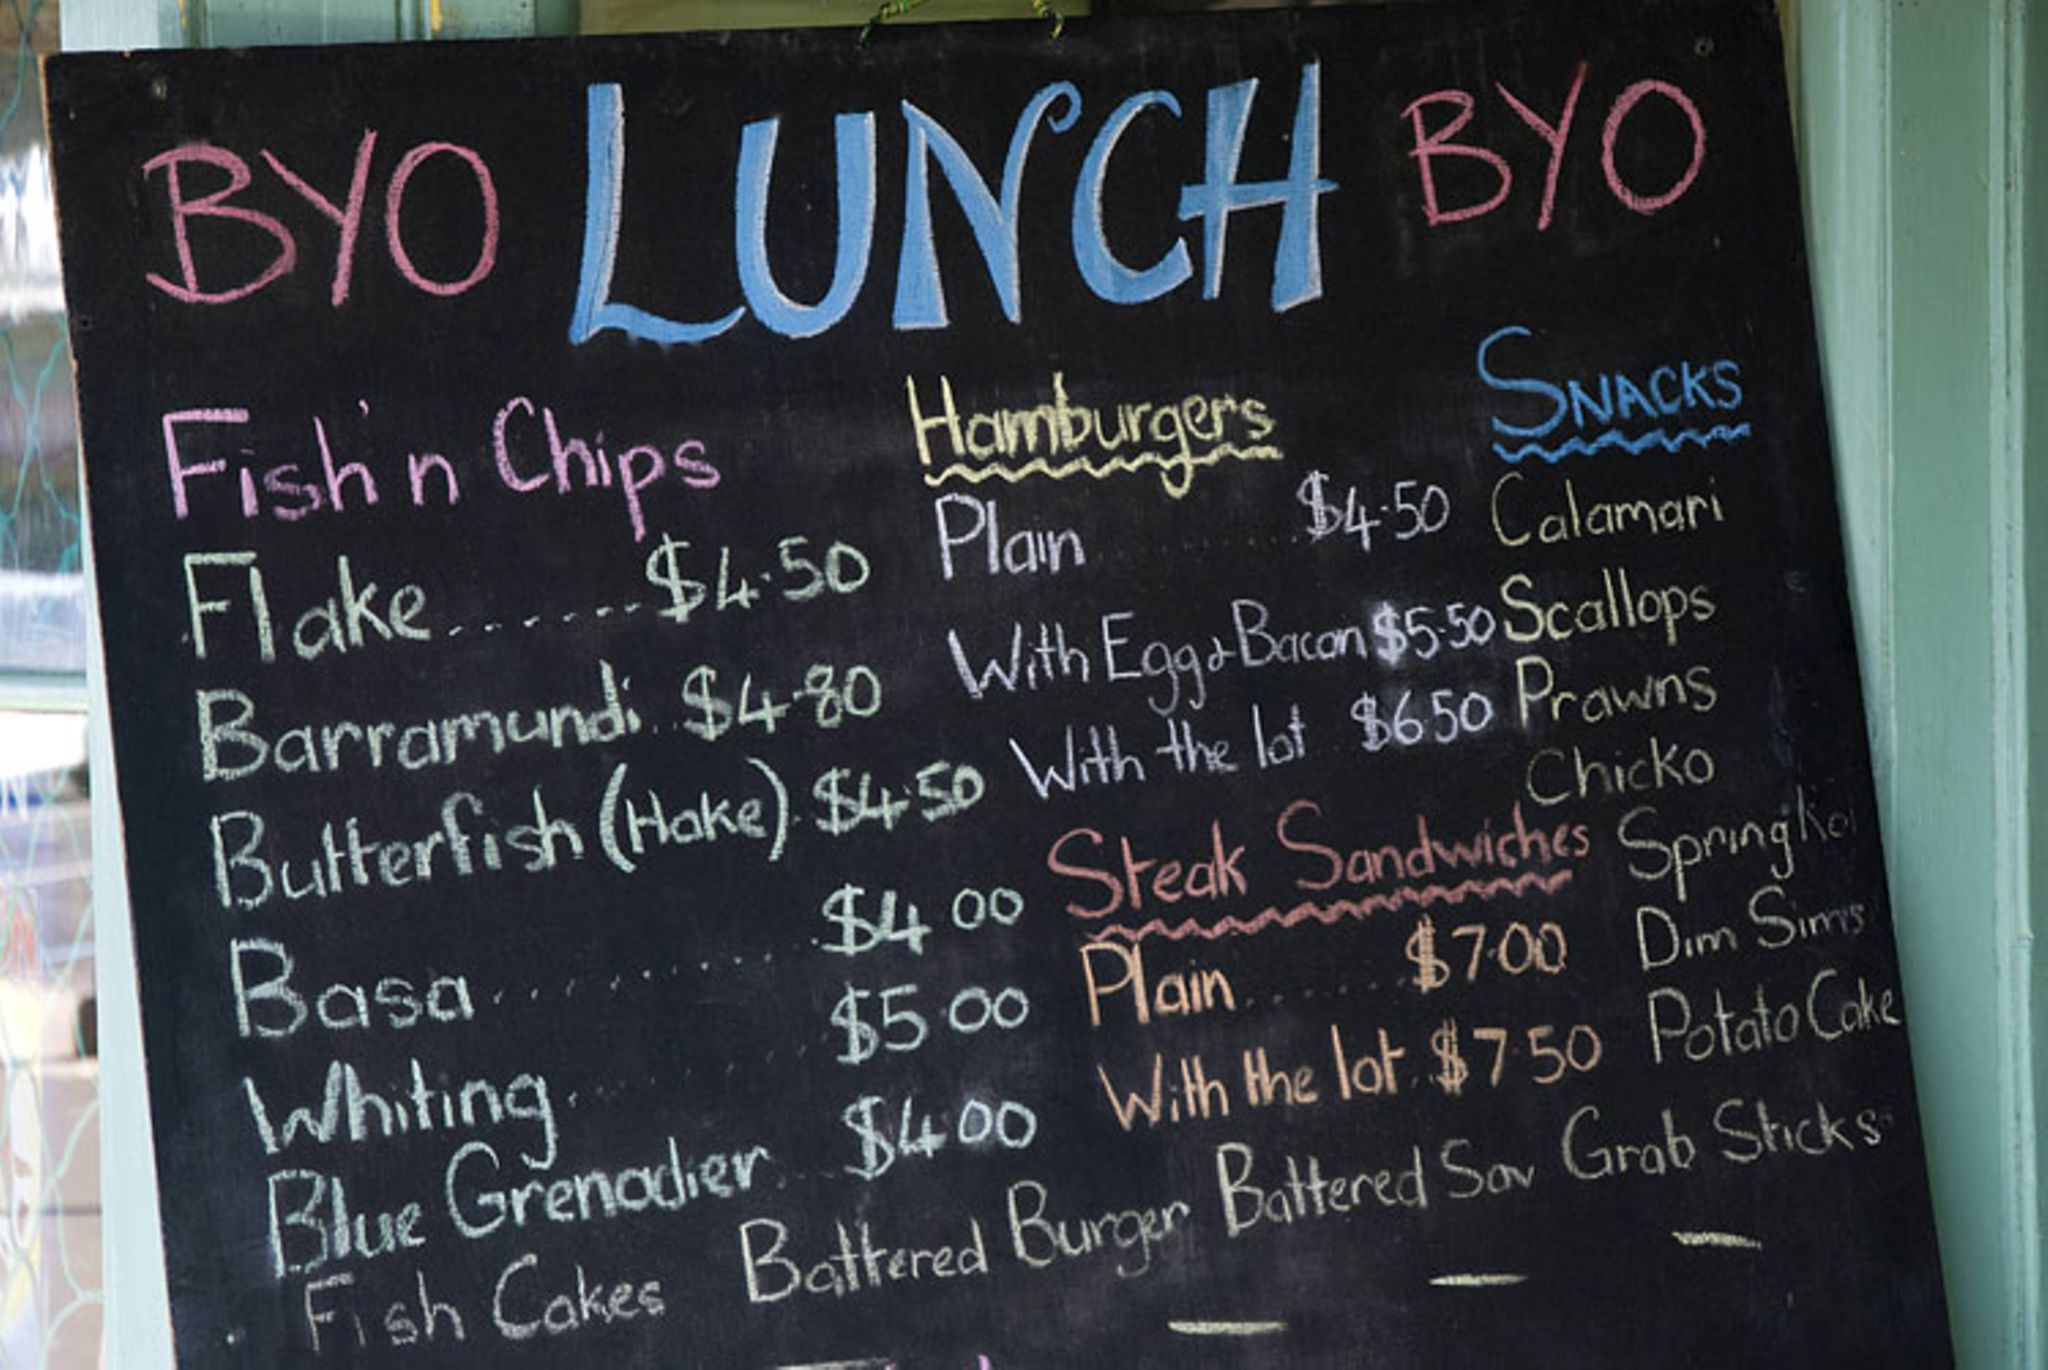 BYO LUNCH BYO
Fish 'n Chips
Flake.......$4.50
Barramundi..$4.80
Butterfish (Hake).$4.50
Basa..........$4.00
Whiting........$5.00
Blue Grenadier...$4.00
Hamburgers
Plain..........$4.50
With Egg & Bacon $5.50
With the lot..$6.50
Steak Sandwiches
Plain........$7.00
With the lot..$7.50
SNACKS
Calamari
Scallops
Prawns
Chicko
Spring
Dim Sims
Potato Cake
Fish Cakes Battered Burger Battered Sav Grab Sticks